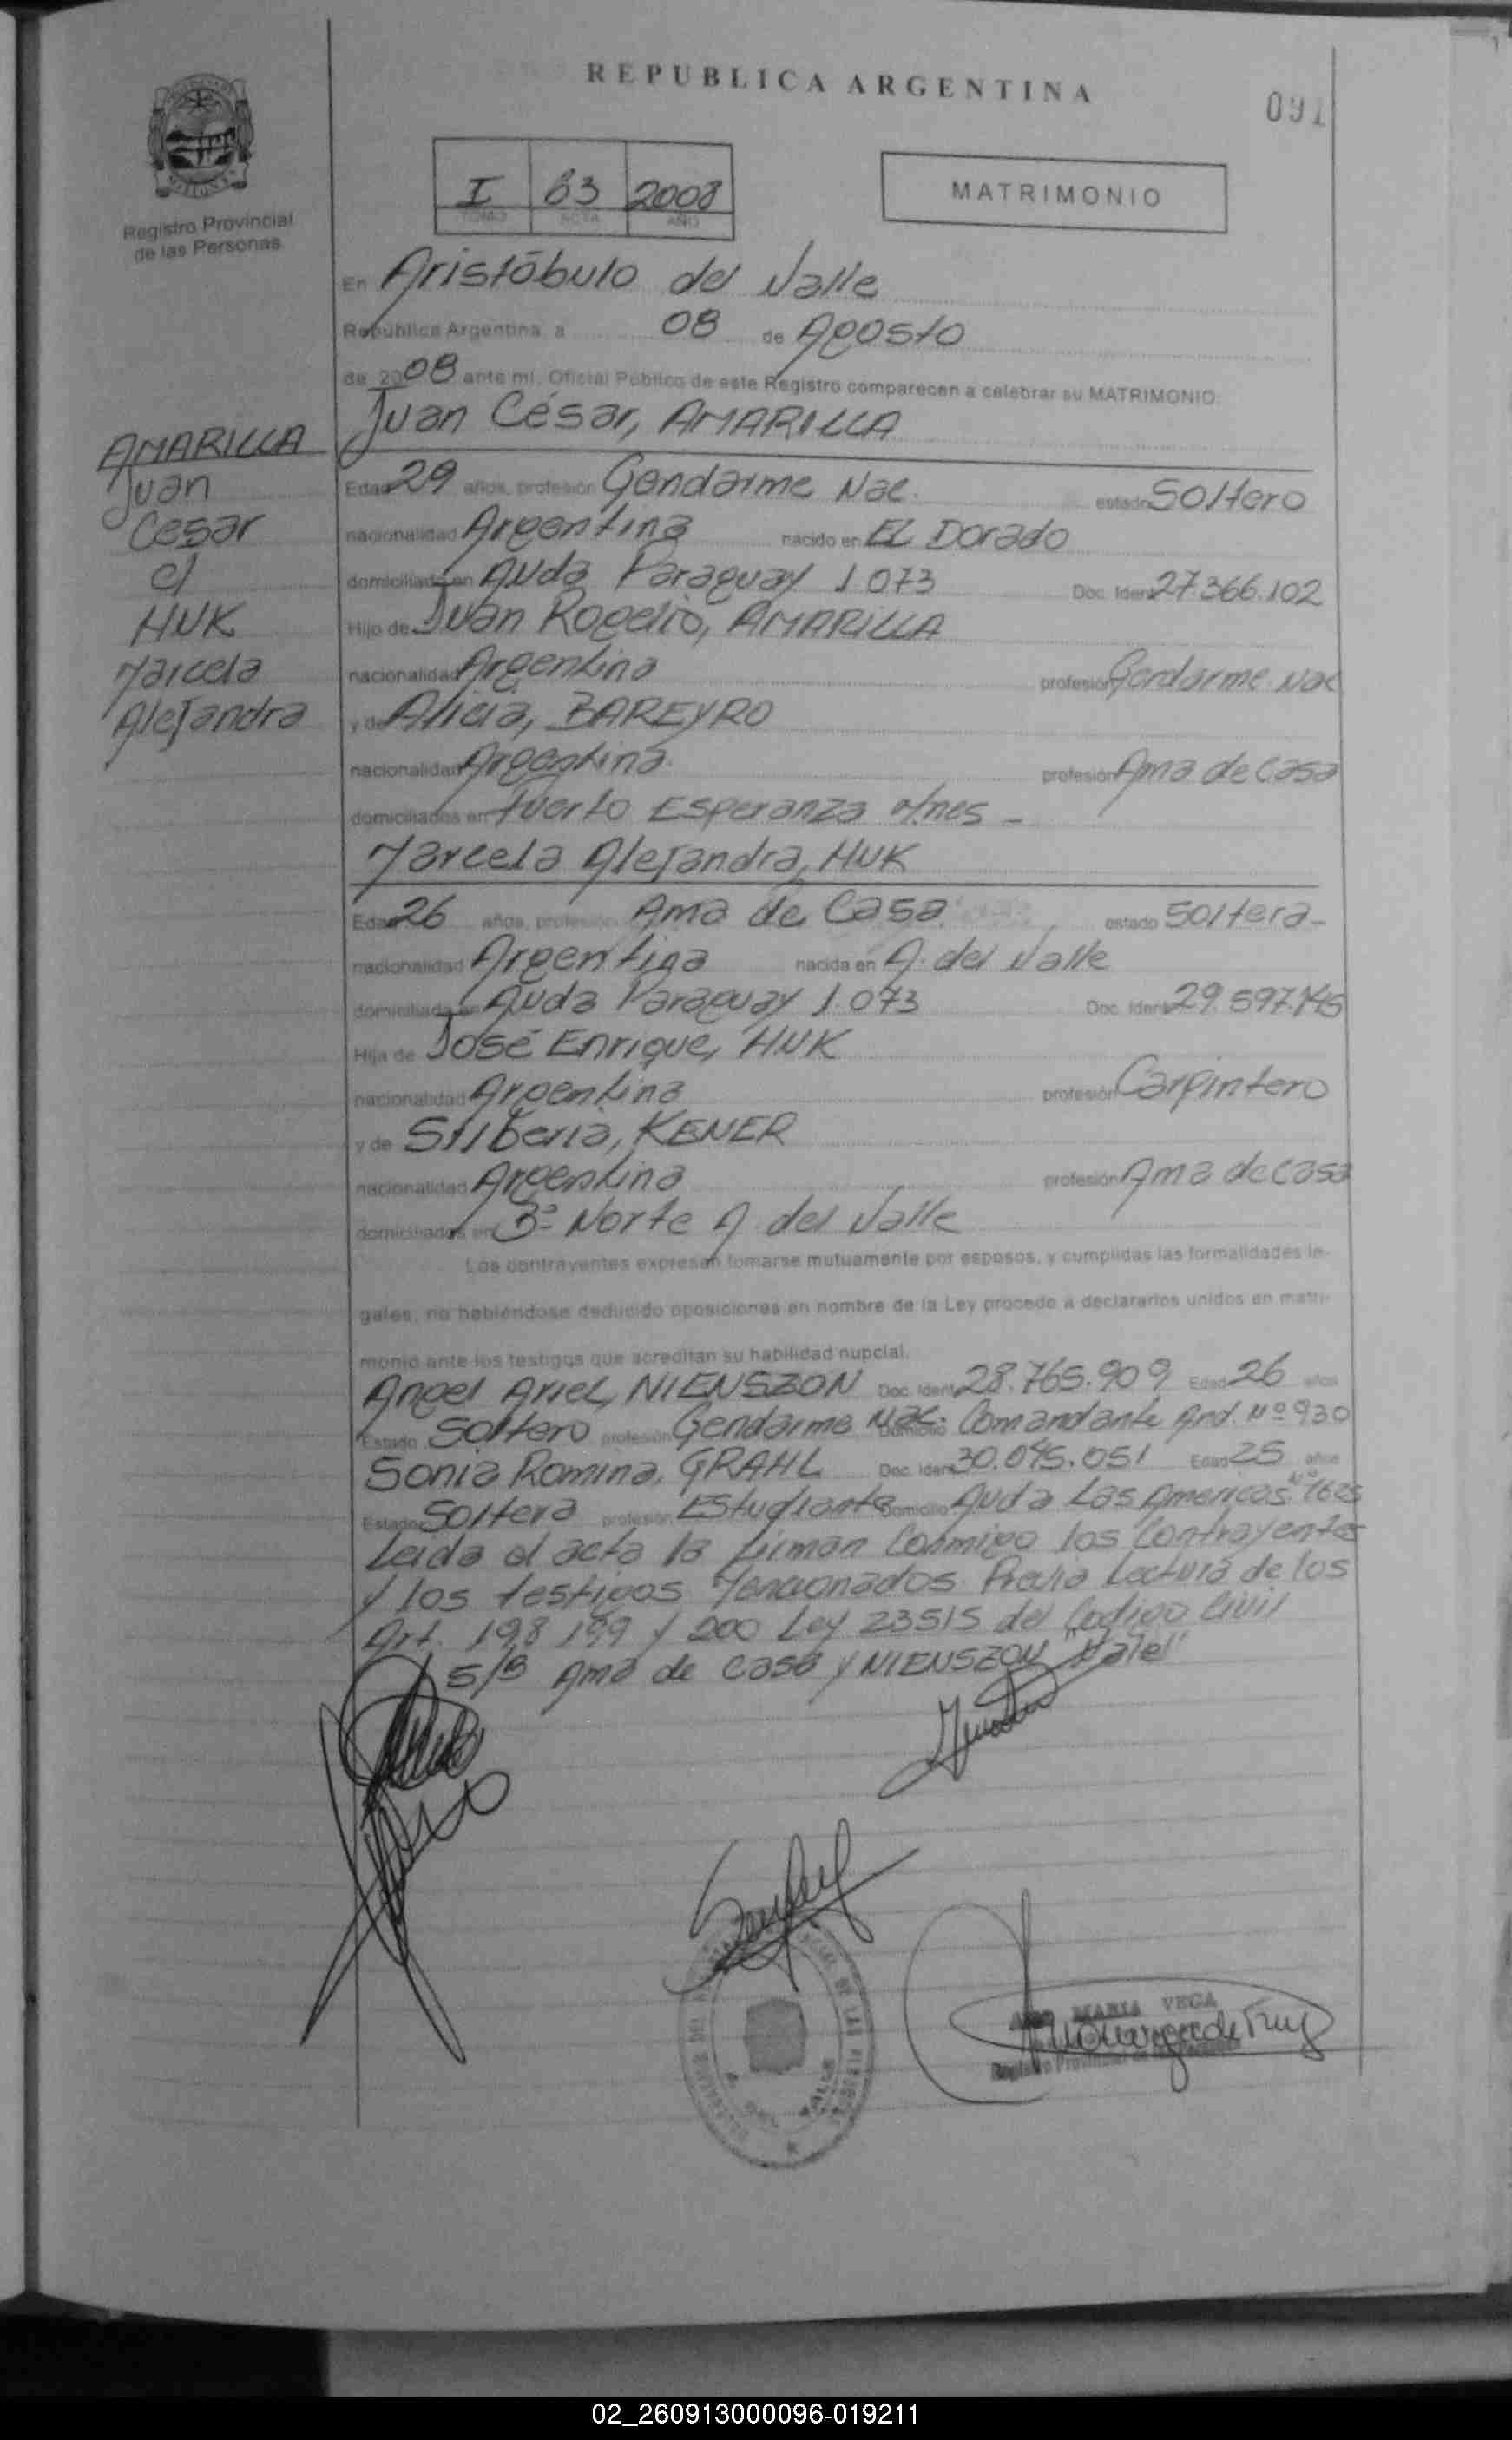 REPUBLICA ARGENTINA
091
I 63 2008
TOMO ACTA AÑO
MATRIMONIO
Registro Provincial
de las Personas
En Aristóbulo del Valle
República Argentina, a 08 de Agosto
de 2008 ante mí, Oficial Público de este Registro comparecen a celebrar su MATRIMONIO:
Juan César, AMARILLA
AMARILLA
Juan
Cesar
c/
HUK
Marcela
Alejandra
Edad 29 años, profesión Gendarme Nac. estado Soltero
nacionalidad Argentina nacido en EL Dorado
domiciliado en Avda Paraguay 1.073 Doc. Ident. 27.366.102
Hijo de Juan Rogelio, AMARILLA
nacionalidad Argentina profesión Gendarme Nac
y de Alicia, BAREYRO
nacionalidad Argentina profesión Ama de Casa
domiciliados en Puerto Esperanza Mnes -
Marcela Alejandra, HUK
Edad 26 años, profesión Ama de Casa estado Soltera-
nacionalidad Argentina nacida en A. del Valle
domiciliada en Avda Paraguay 1.073 Doc. Ident. 29.597.145
Hija de José Enrique, HUK
nacionalidad Argentina profesión Carpintero
y de Silberia, KENER
nacionalidad Argentina profesión Ama de Casa
domiciliados en B° Norte A. del Valle
Los contrayentes expresan tomarse mutuamente por esposos, y cumplidas las formalidades le-
gales, no habiéndose deducido oposiciones en nombre de la Ley procedo a declararlos unidos en matri-
monio ante los testigos que acreditan su habilidad nupcial.
Angel Ariel, NIENSZON Doc. Ident. 28.765.909 Edad 26 años
Estado Soltero profesión Gendarme Nac. Domicilio Comandante And. Nº 930
Sonia Romina, GRAHL Doc. Ident. 30.045.051 Edad 25 años
Estado Soltera profesión Estudiante Domicilio Avda Las Americas Nº 1625
Leida el acta la firman Conmigo los Contrayentes
y los testigos Mencionados Previa Lectura de los
Art. 198 199 y 200 Ley 23515 del Codigo Civil
S/B Ama de Casa y NIENSZON "Vale"
MARIA VEGA
Registro Provincial de las Personas
A. DEL VALLE
02_260913000096-019211